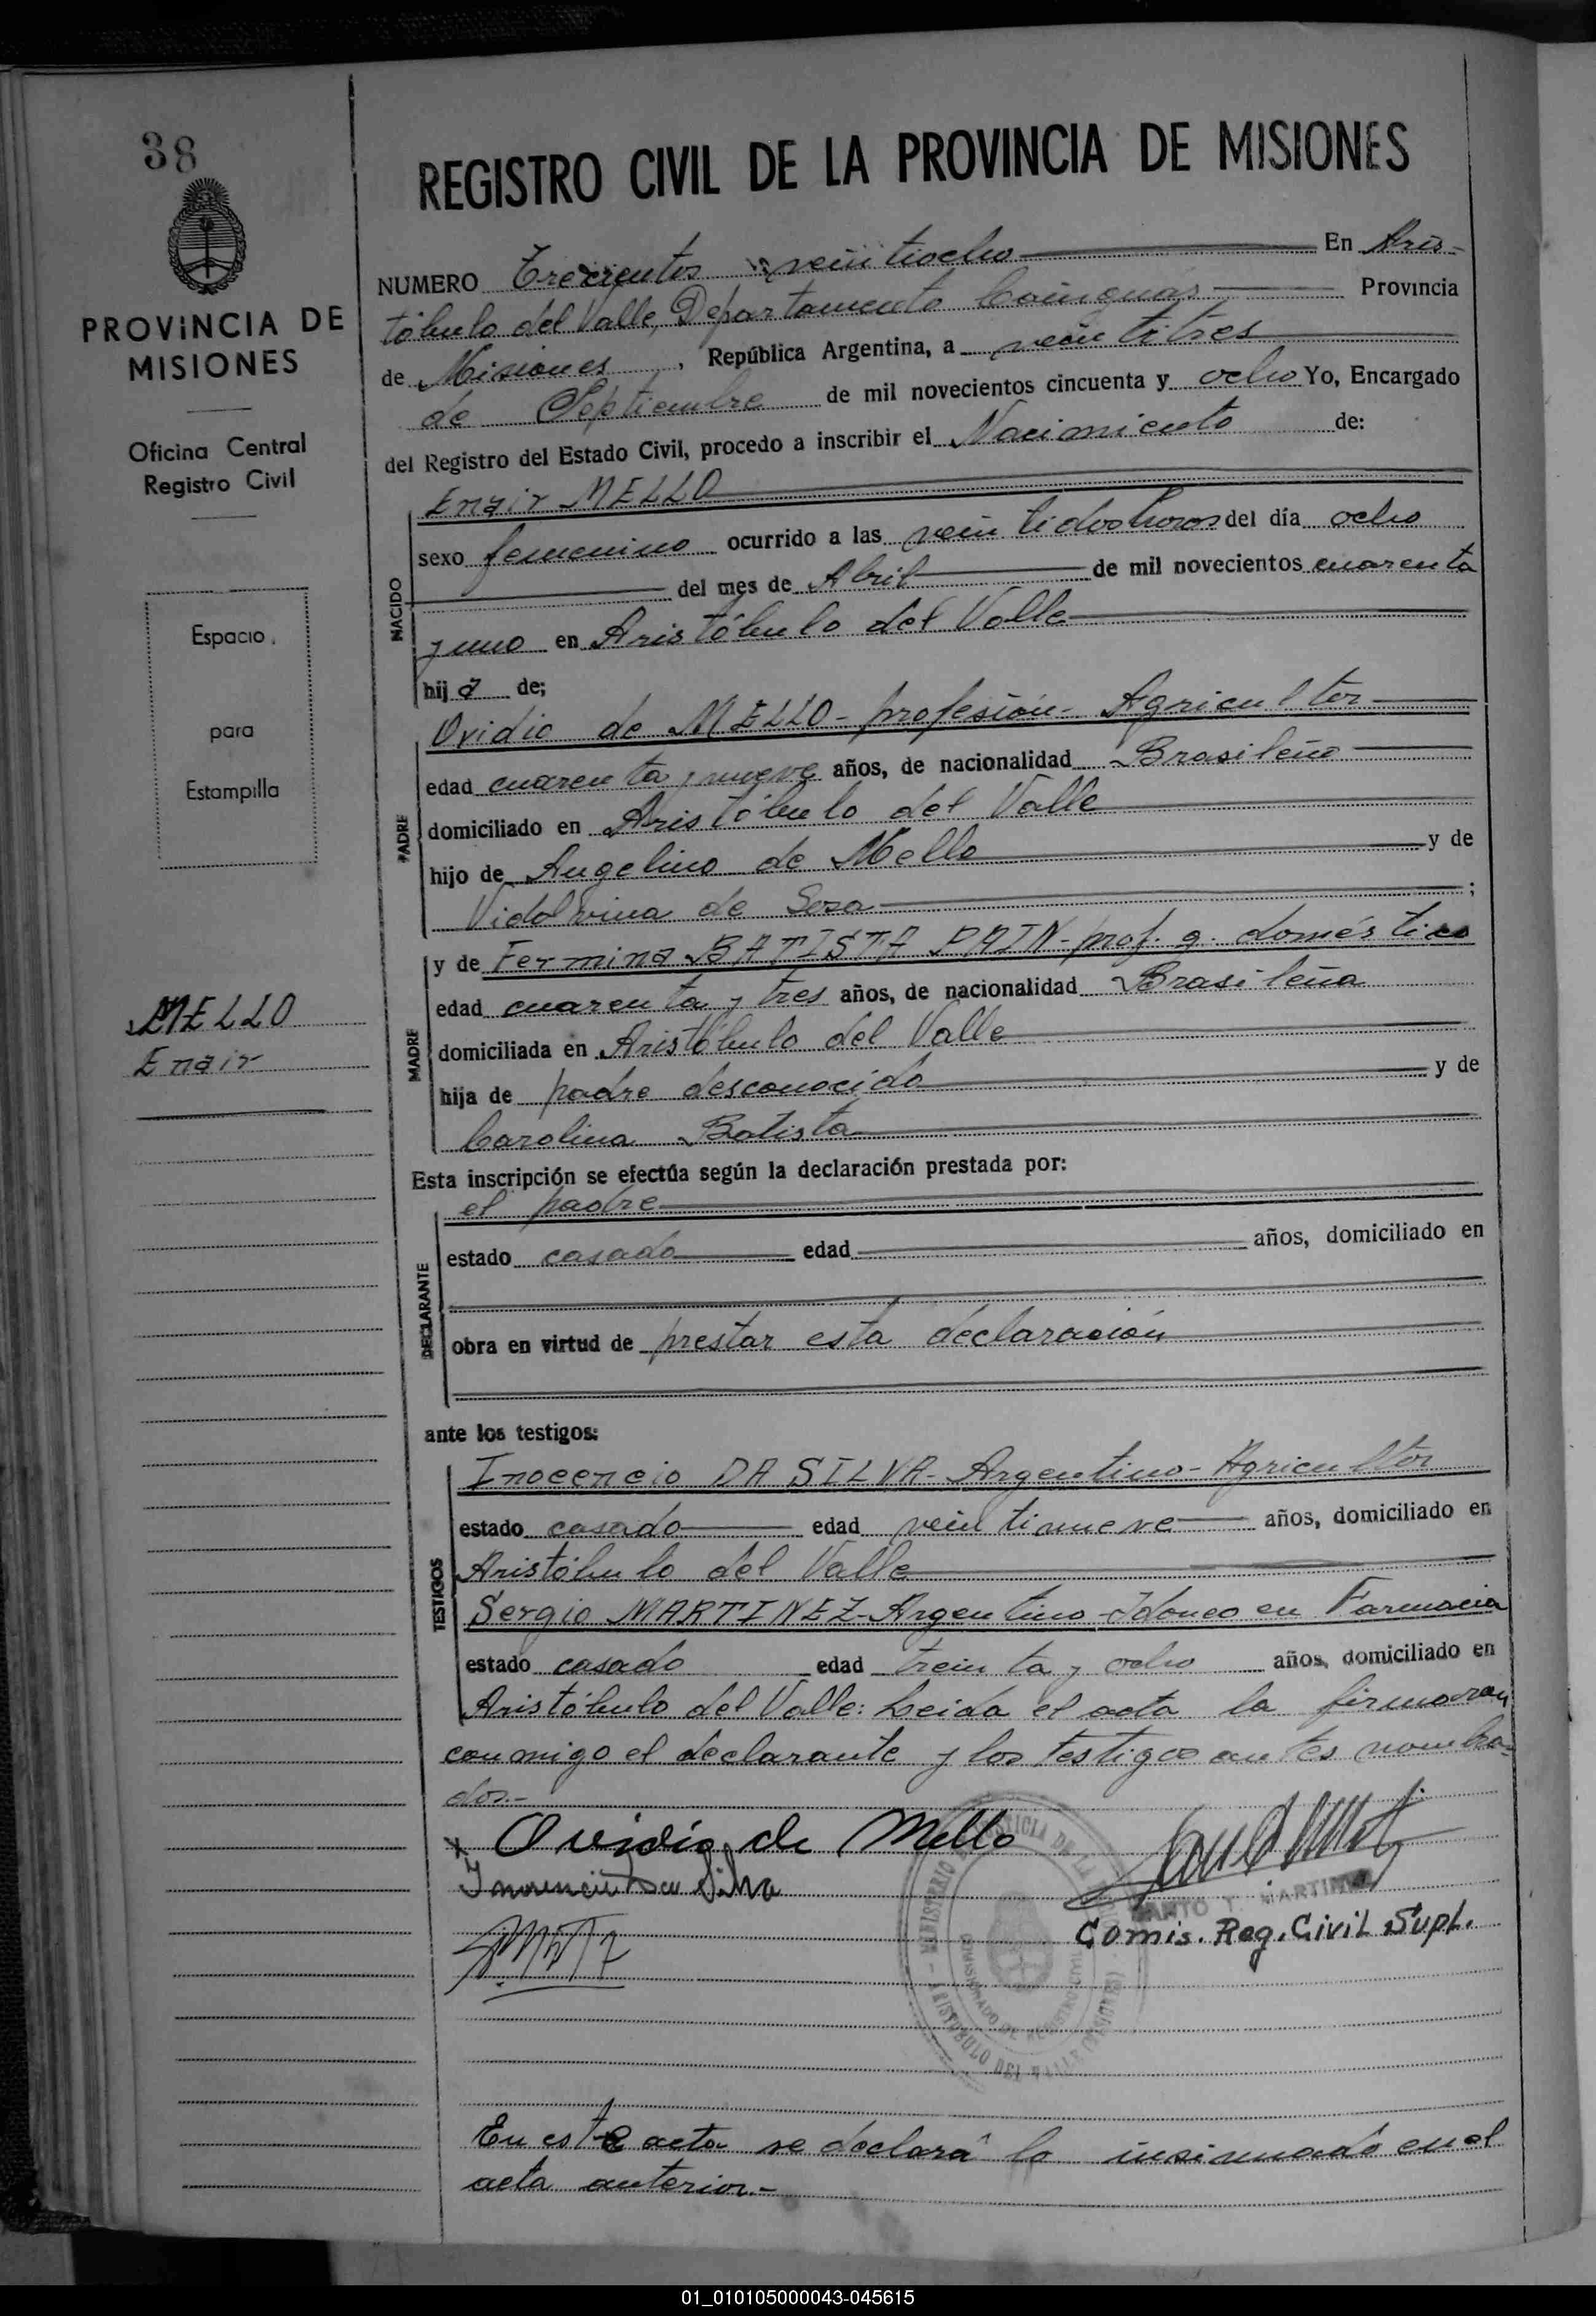 38
PROVINCIA DE
MISIONES
Oficina Central
Registro Civil
Espacio
para
Estampilla
MELLO
Enair
REGISTRO CIVIL DE LA PROVINCIA DE MISIONES
NUMERO Trecientos veintiocho En Aris-
tóbulo del Valle, Departamento Cainguás Provincia
de Misiones, República Argentina, a veintitres
de Septiembre de mil novecientos cincuenta y ocho Yo, Encargado
del Registro del Estado Civil, procedo a inscribir el Nacimiento de:
NACIDO
Enair MELLO
sexo femenino ocurrido a las veintidos horas del día ocho
del mes de Abril de mil novecientos cuarenta
y uno en Aristóbulo del Valle
hija de;
PADRE
Ovidio de MELLO - profesión - Agricultor
edad cuarenta y nueve años, de nacionalidad Brasileño
domiciliado en Aristóbulo del Valle
hijo de Angelino de Mello y de
Vidalvina de Sosa ;
MADRE
y de Fermina BATISTA PAIN - prof. q. doméstico
edad cuarenta y tres años, de nacionalidad Brasileña
domiciliada en Aristóbulo del Valle
hija de padre desconocido y de
Carolina Batista
Esta inscripción se efectúa según la declaración prestada por:
DECLARANTE
el padre
estado casado edad años, domiciliado en
obra en virtud de prestar esta declaración
ante los testigos:
TESTIGOS
Inocencio DA SILVA - Argentino - Agricultor
estado casado edad veintinueve años, domiciliado en
Aristóbulo del Valle
Sergio MARTINEZ - Argentino - Idoneo en Farmacia
estado casado edad treinta y ocho años, domiciliado en
Aristóbulo del Valle: Leida el acta la firmaran
conmigo el declarante y los testigos antes nombra-
dos.-
x Ovidio de Mello
Inocencio Da Silva
MARTIN
Comis. Reg. Civil Supl.
En este acta se declara lo insinuado en el
acta anterior.-
01_010105000043-045615